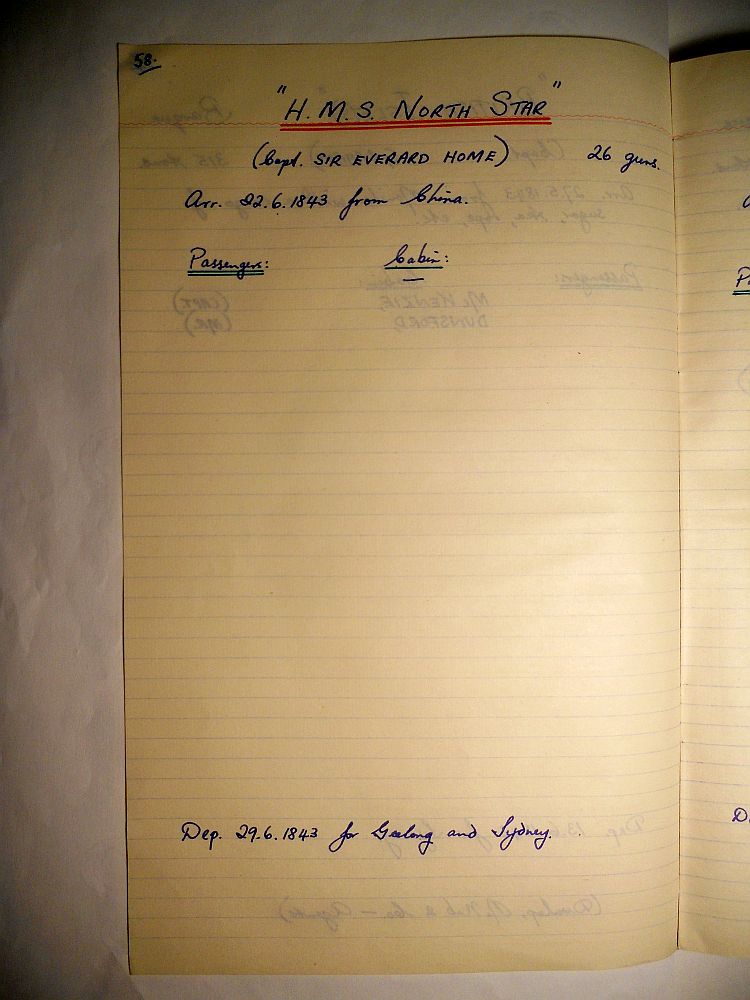 58.
"H.M.S. NORTH STAR"
(Capt. SIR EVERARD HOME) 26 guns.
Arr. 22.6.1843 from China.
Passengers: Cabin:
—
Dep. 29.6.1843 for Geelong and Sydney.